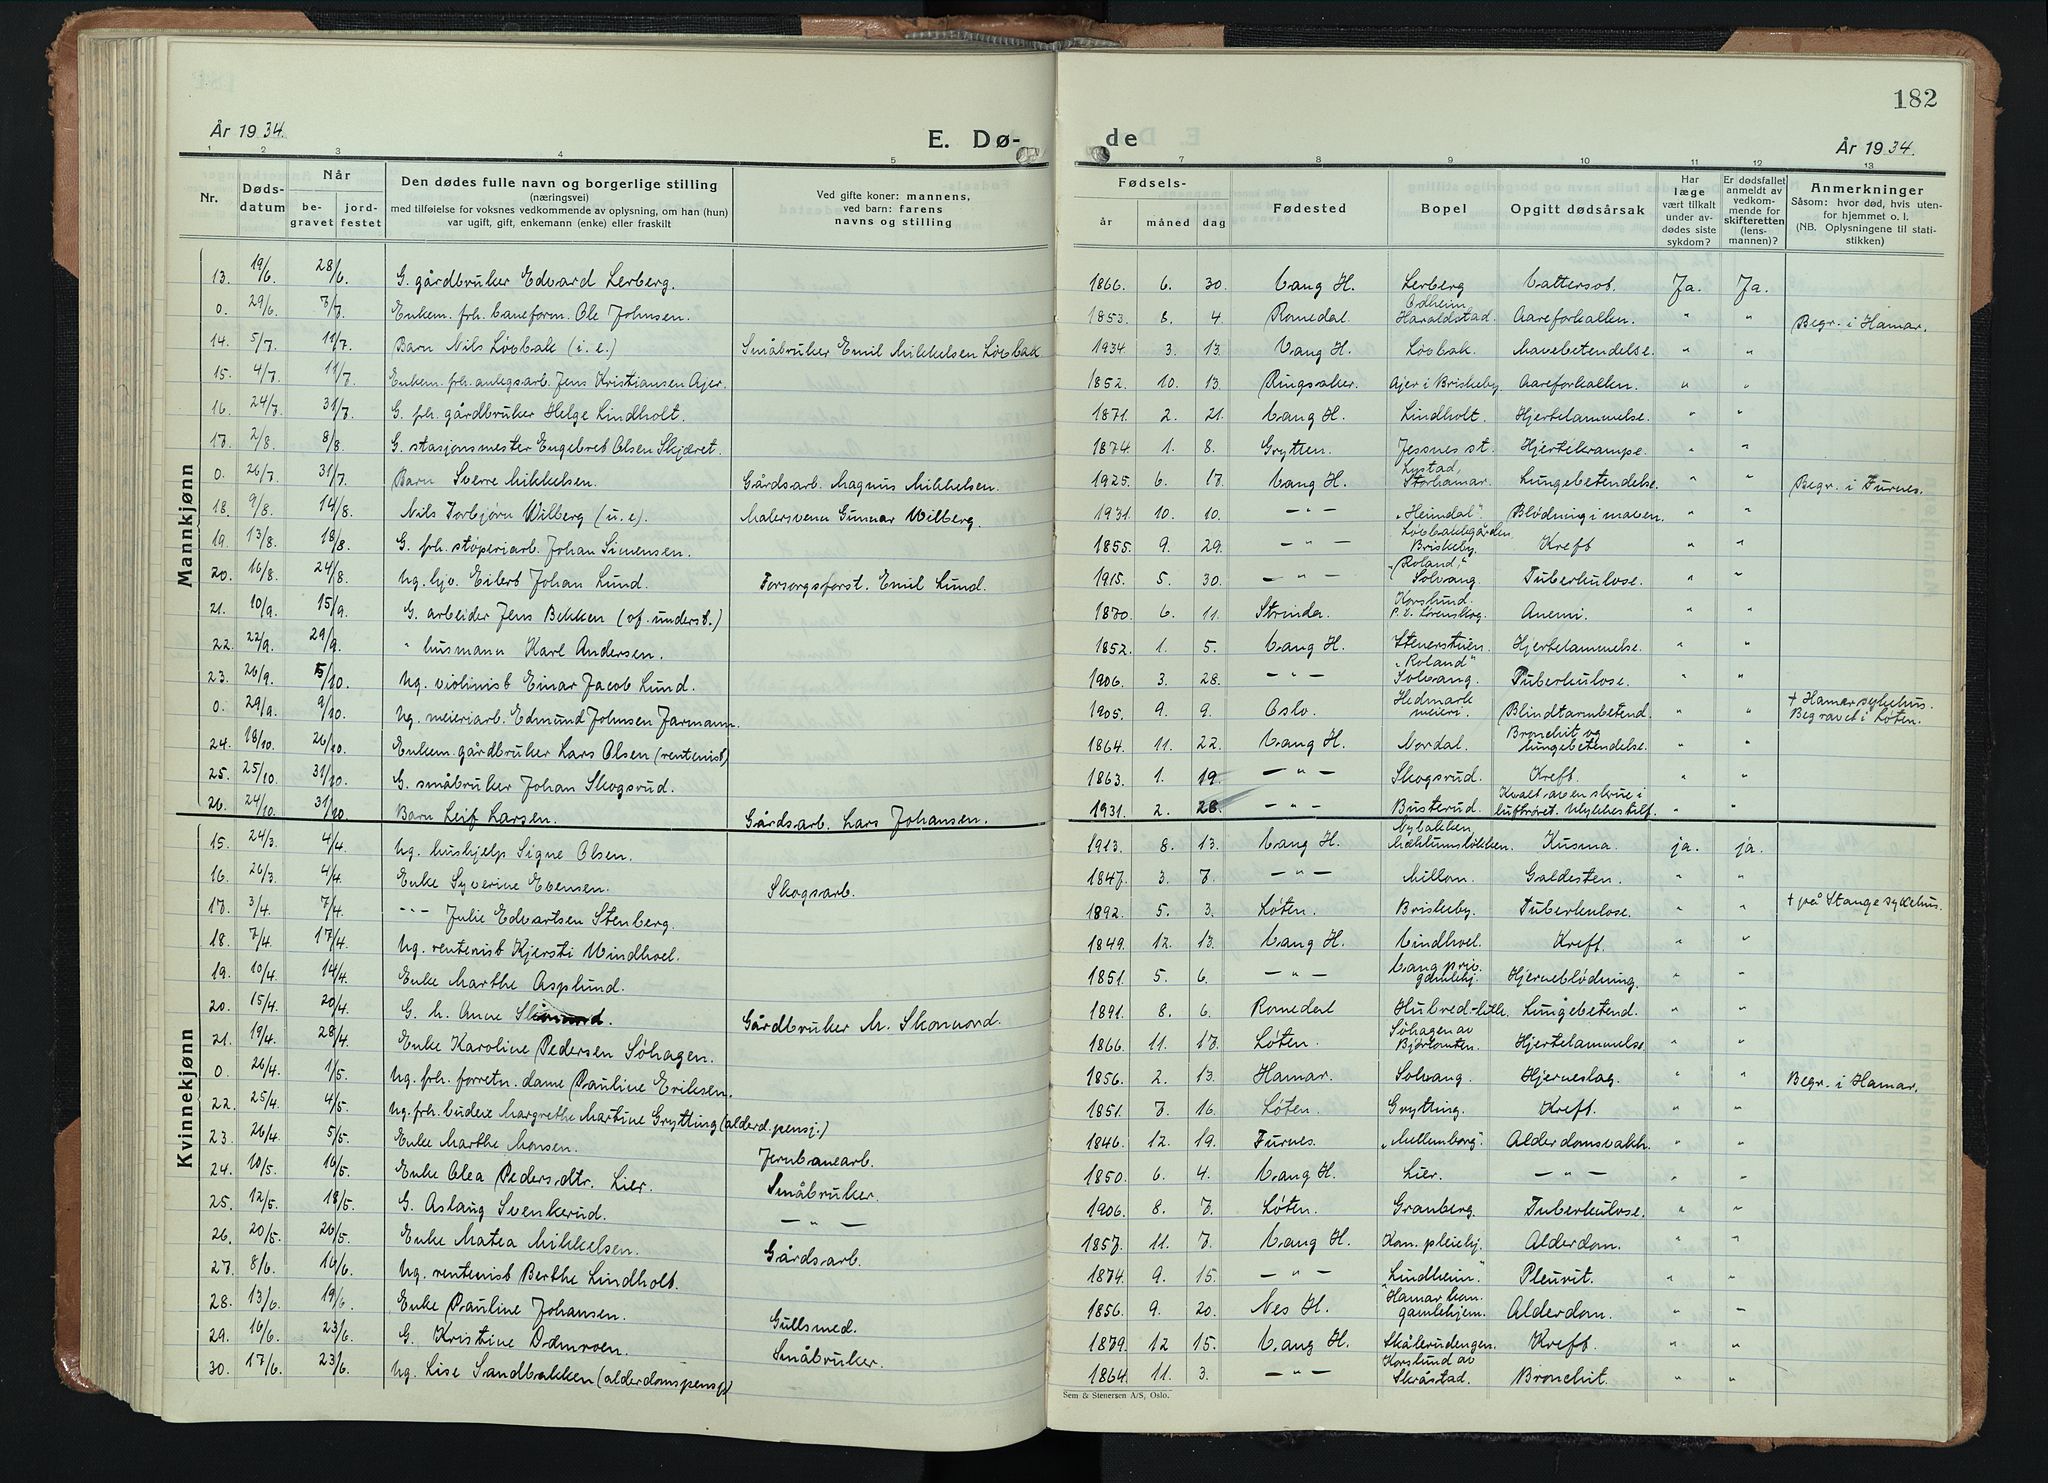 182
År 1934.
E. Dø-
de
År 1934.
1 2 3 4 5 7 8 9 10 11 12 13
Nr.
Dødsdatum
Når
begravet
jordfestet
Den dødes fulle navn og borgerlige stilling
(næringsvei)
med tilføielse for voksnes vedkommende av oplysning, om han (hun)
var ugift, gift, enkemann (enke) eller fraskilt
Ved gifte koner: mannens,
ved barn: farens
navns og stilling
Fødsels-
år måned dag
Fødested
Bopel
Opgitt dødsårsak
Har
læge
vært tilkalt
under av-
dødes siste
sykdom?
Er dødsfallet
anmeldt av
vedkom-
mende for
skifteretten
(lens-
mannen)?
Anmerkninger
Såsom: hvor død, hvis uten-
for hjemmet o. l.
(NB. Oplysningene til stati-
stikken)
Mannkjønn
13. 19/6 28/6. G. gårdbruker Edvard Lerberg. 1866. 6. 30. Vang H. Lerberg Vattersot. Ja. Ja.
0. 29/6. 7/7. Enkem. frh. baneform. Ole Johnsen. 1853. 8. 4. Romedal. Haraldstad. Aareforkalkn. " " Begr. i Hamar.
14. 5/7. 11/7. Barn Nils Løvbak (i. e.) Småbruker Emil Mikkelsen Løvbak 1934. 3. 13. Vang H. Løvbak. Mavebetendelse. " "
15. 4/7. 11/7. Enkem. frh. anlegsarb. Jens Kristiansen Ajer. 1852. 10. 13. Ringsaker. Ajer i Briskeby. Aareforkalkn. " "
16. 24/7. 31/7. G. frh. gårdbruker Helge Lindholt. 1871. 2. 21. Vang H. Lindholt. Hjertelammelse. " "
17. 2/8. 8/8. G. stasjonsmester Engebret Olsen Skjæret. 1874. 1. 8. Grytten. Jessnes st. Hjertekrampe. " "
0. 26/7. 31/7. Barn Sverre Mikkelsen. Gårdsarb. Magnus Mikkelsen. 1925. 6. 17. Vang H. Lystad, Storhamar. Lungebetendelse. " " Begr. i Furnes.
18. 9/8. 14/8. Nils Torbjørn Wilberg (u. e). Malersvenn Gunnar Wilberg. 1931. 10. 10. — " — "Heimdal" Blødning i maven. " "
19. 13/8. 18/8. G. frh. støperiarb. Johan Simensen. 1855. 9. 29. — " — Løvbakkegården, Briskeby. Kreft " "
20. 16/8. 24/8. Ug. hjv. Eilert Johan Lund. Forsorgsforst. Emil Lund. 1915. 5. 30. — " — "Roland," Solvang. Tuberkulose. " "
21. 10/9. 15/9. G. arbeider Jens Bekken (of. underst.) 1870. 6. 11. Strinda. Korslund. p. v. Lørensberg. Anemi. " "
22. 22/9. 29/9. " husmann Karl Andersen. 1852. 1. 5. Vang H. Stenerstuen. Hjertelammelse. " "
23. 26/9. 5/10. Ug. violinist Einar Jacob Lund. 1906. 3. 28. — " — "Roland" Solvang. Tuberkulose. " "
0. 29/9. 9/10. Ug. meieriarb. Edmund Johnsen Jarmann. 1905. 9. 9. Oslo. Hedmark meieri. Blindtarmbetend. " " + Hamar sykehus. Begravet i Løten.
24. 18/10. 26/10. Enkem. gårdbruker Lars Olsen (rentenist) 1864. 11. 22. Vang H. Nordal. Bronchit og lungebetendelse. " "
25. 25/10. 31/10. G. småbruker Johan Skogsrud. 1863. 1. 19. — " — Skogsrud. Kreft. " "
26. 24/10. 31/10 Barn Leif Larsen. Gårdsarb. Lars Johansen. 1931. 2. 28. — " — Busterud. Kvalt av en skrue i luftrøret. Ulykkestilf. " "
Kvinnekjønn
15. 24/3. 4/4. Ug. hushjelp Signe Olsen. 1913. 8. 13. Vang H. Nybakken, Mæhlumsløkken. Kusma. ja. ja.
16. 26/3. 4/4. Enke Syverine Evensen. Skogsarb. 1847. 3. 7. — " — Millom. Galdesten. " "
17. 3/4. 7/4. — " — Julie Edvartsen Stenberg. 1892. 5. 3. Løten. Briskeby. Tuberkulose. " " + på Stange sykehus.
18. 7/4. 17/4. Ug. rentenist Kjersti Vindhol. 1849. 12. 13. Vang H. Vindhol. Kreft. " "
19. 10/4. 14/4. Enke Marthe Asplund. 1851. 5. 6. — " — Vang priv. gamlehj. Hjerneblødning. " "
20. 15/4. 20/4. G. h. Anne Gårdbruker M. Skomord. 1891. 8. 6. Romedal Hubred-litle. Lungebetend. " "
21. 19/4. 28/4. Enke Karoline Pedersen Søhagen. 1866. 11. 17. Løten. Søhagen av Hjertelammelse. " "
0. 26/4. 1/5. Ug. frh. forretn. dame Pauline Eriksen. 1856. 2. 13. Hamar. Solvang. Hjerneslag. " " Begr. i Hamar.
22. 25/4. 4/5. Ug. frh. budeie Margrethe Martine Grytting (alderd. pensj.) 1851. 7. 16. Løten. Grytting. Kreft. " "
23. 26/4. 5/5. Enke Marthe Monsen. Jernbanearb. 1846. 12. 19. Furnes. "Mellemborg". Alderdomsvakh. " "
24. 10/5. 16/5. Enke Olea Pedersdtr. Lier. Småbruker. 1850. 6. 4. Vang H. Lier. — " — " "
25. 12/5. 18/5. G. Aslaug Svenkerud. — " — 1906. 8. 7. Løten. Granberg. Tuberkulose. " "
26. 20/5. 26/5. Enke Matea Mikkelsen. Gårdsarb. 1857. 11. 7. Vang H. Kom. pleiehj. Alderdom. " "
27. 8/6. 16/6. Ug. rentenist Berthe Lindholt. 1874. 9. 15. — " — "Lindheim." Pleurit. " "
28. 13/6. 19/6. Enke Pauline Johansen. Gullsmed. 1856. 9. 20. Nes H. Hamar kom. gamlehjem. Alderdom. " "
29. 16/6. 23/6. G. Kristine Damroen. Småbruker. 1879. 12 15. Vang H. Skålerudengen. Kreft. " "
30. 17/6. 23/6. Ug. Lise Sandbakken (alderdomspensj.) 1864. 11. 3. — " — Korslund av Skråstad. Bronchit. " "
Sem & Stenersen A/S, Oslo.